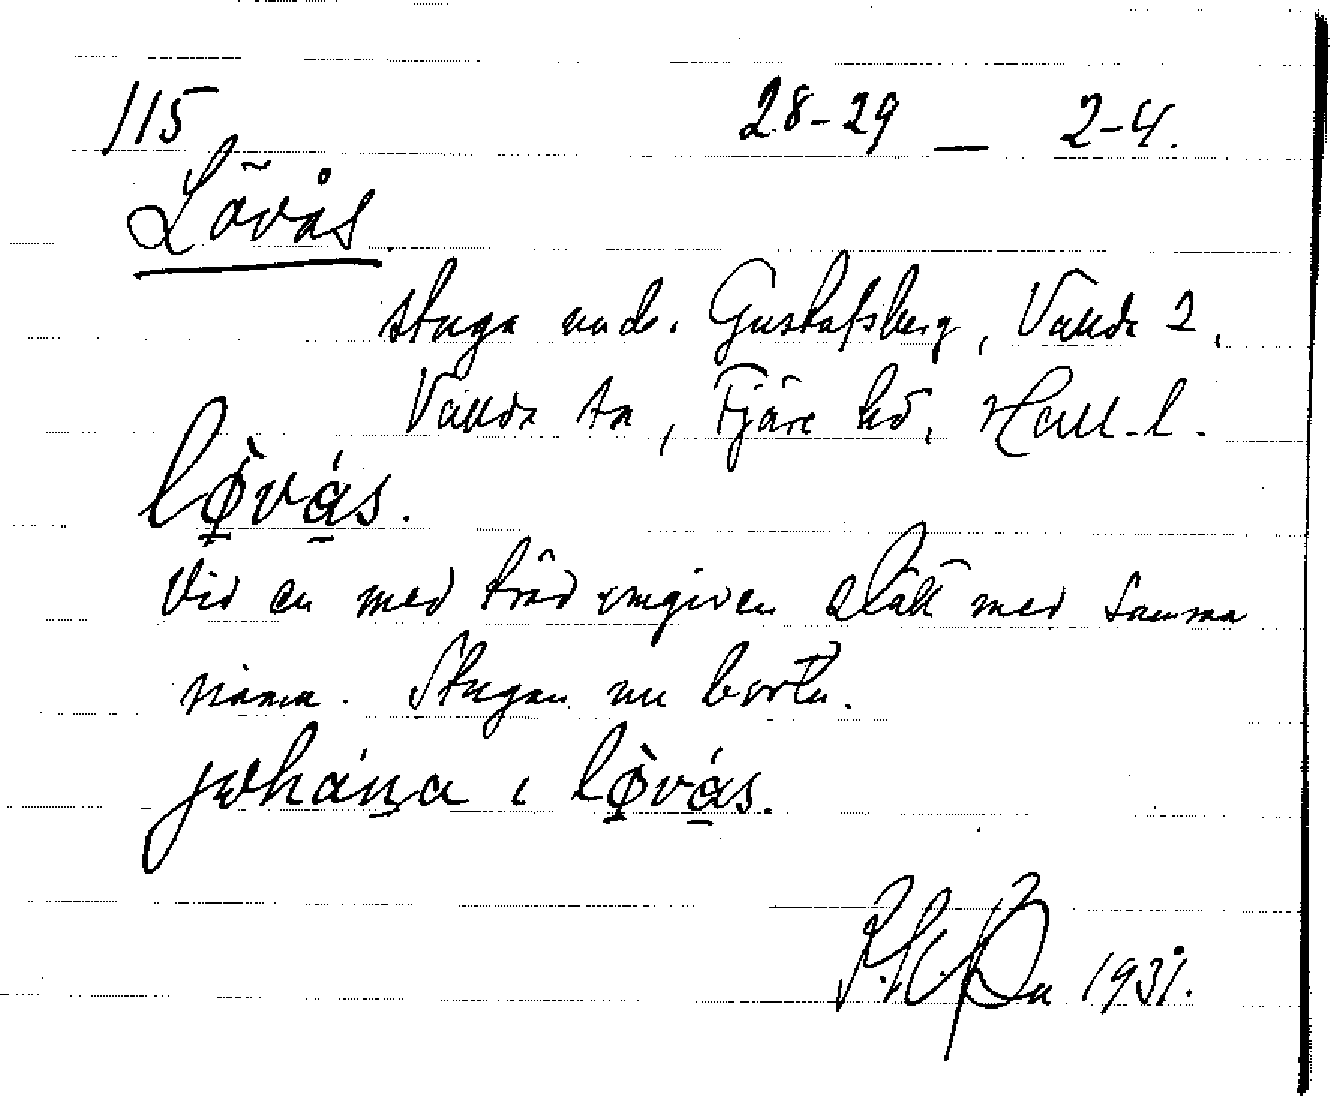 115 28-29 — 2-4.
Lövås
stuga und. Gustafsberg, Vallda 2,
Vallda sn, Fjäre hd, Hall. l.
lø̀vás.
Vid en med träd omgiven slätt med samma
namn. Stugan nu borta.
johána i lø̀vás.
1931.